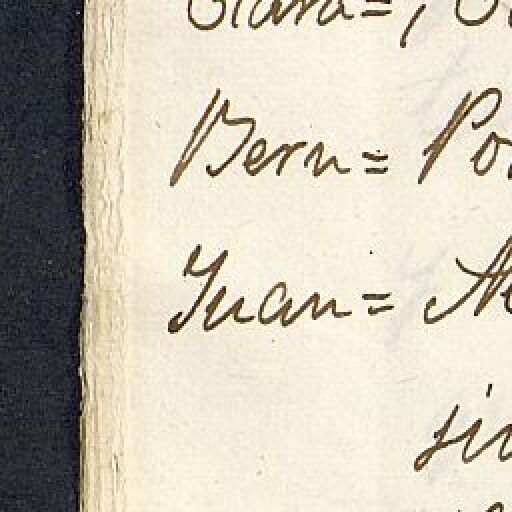 Clara=,
Bern= Po
Juan= A
si